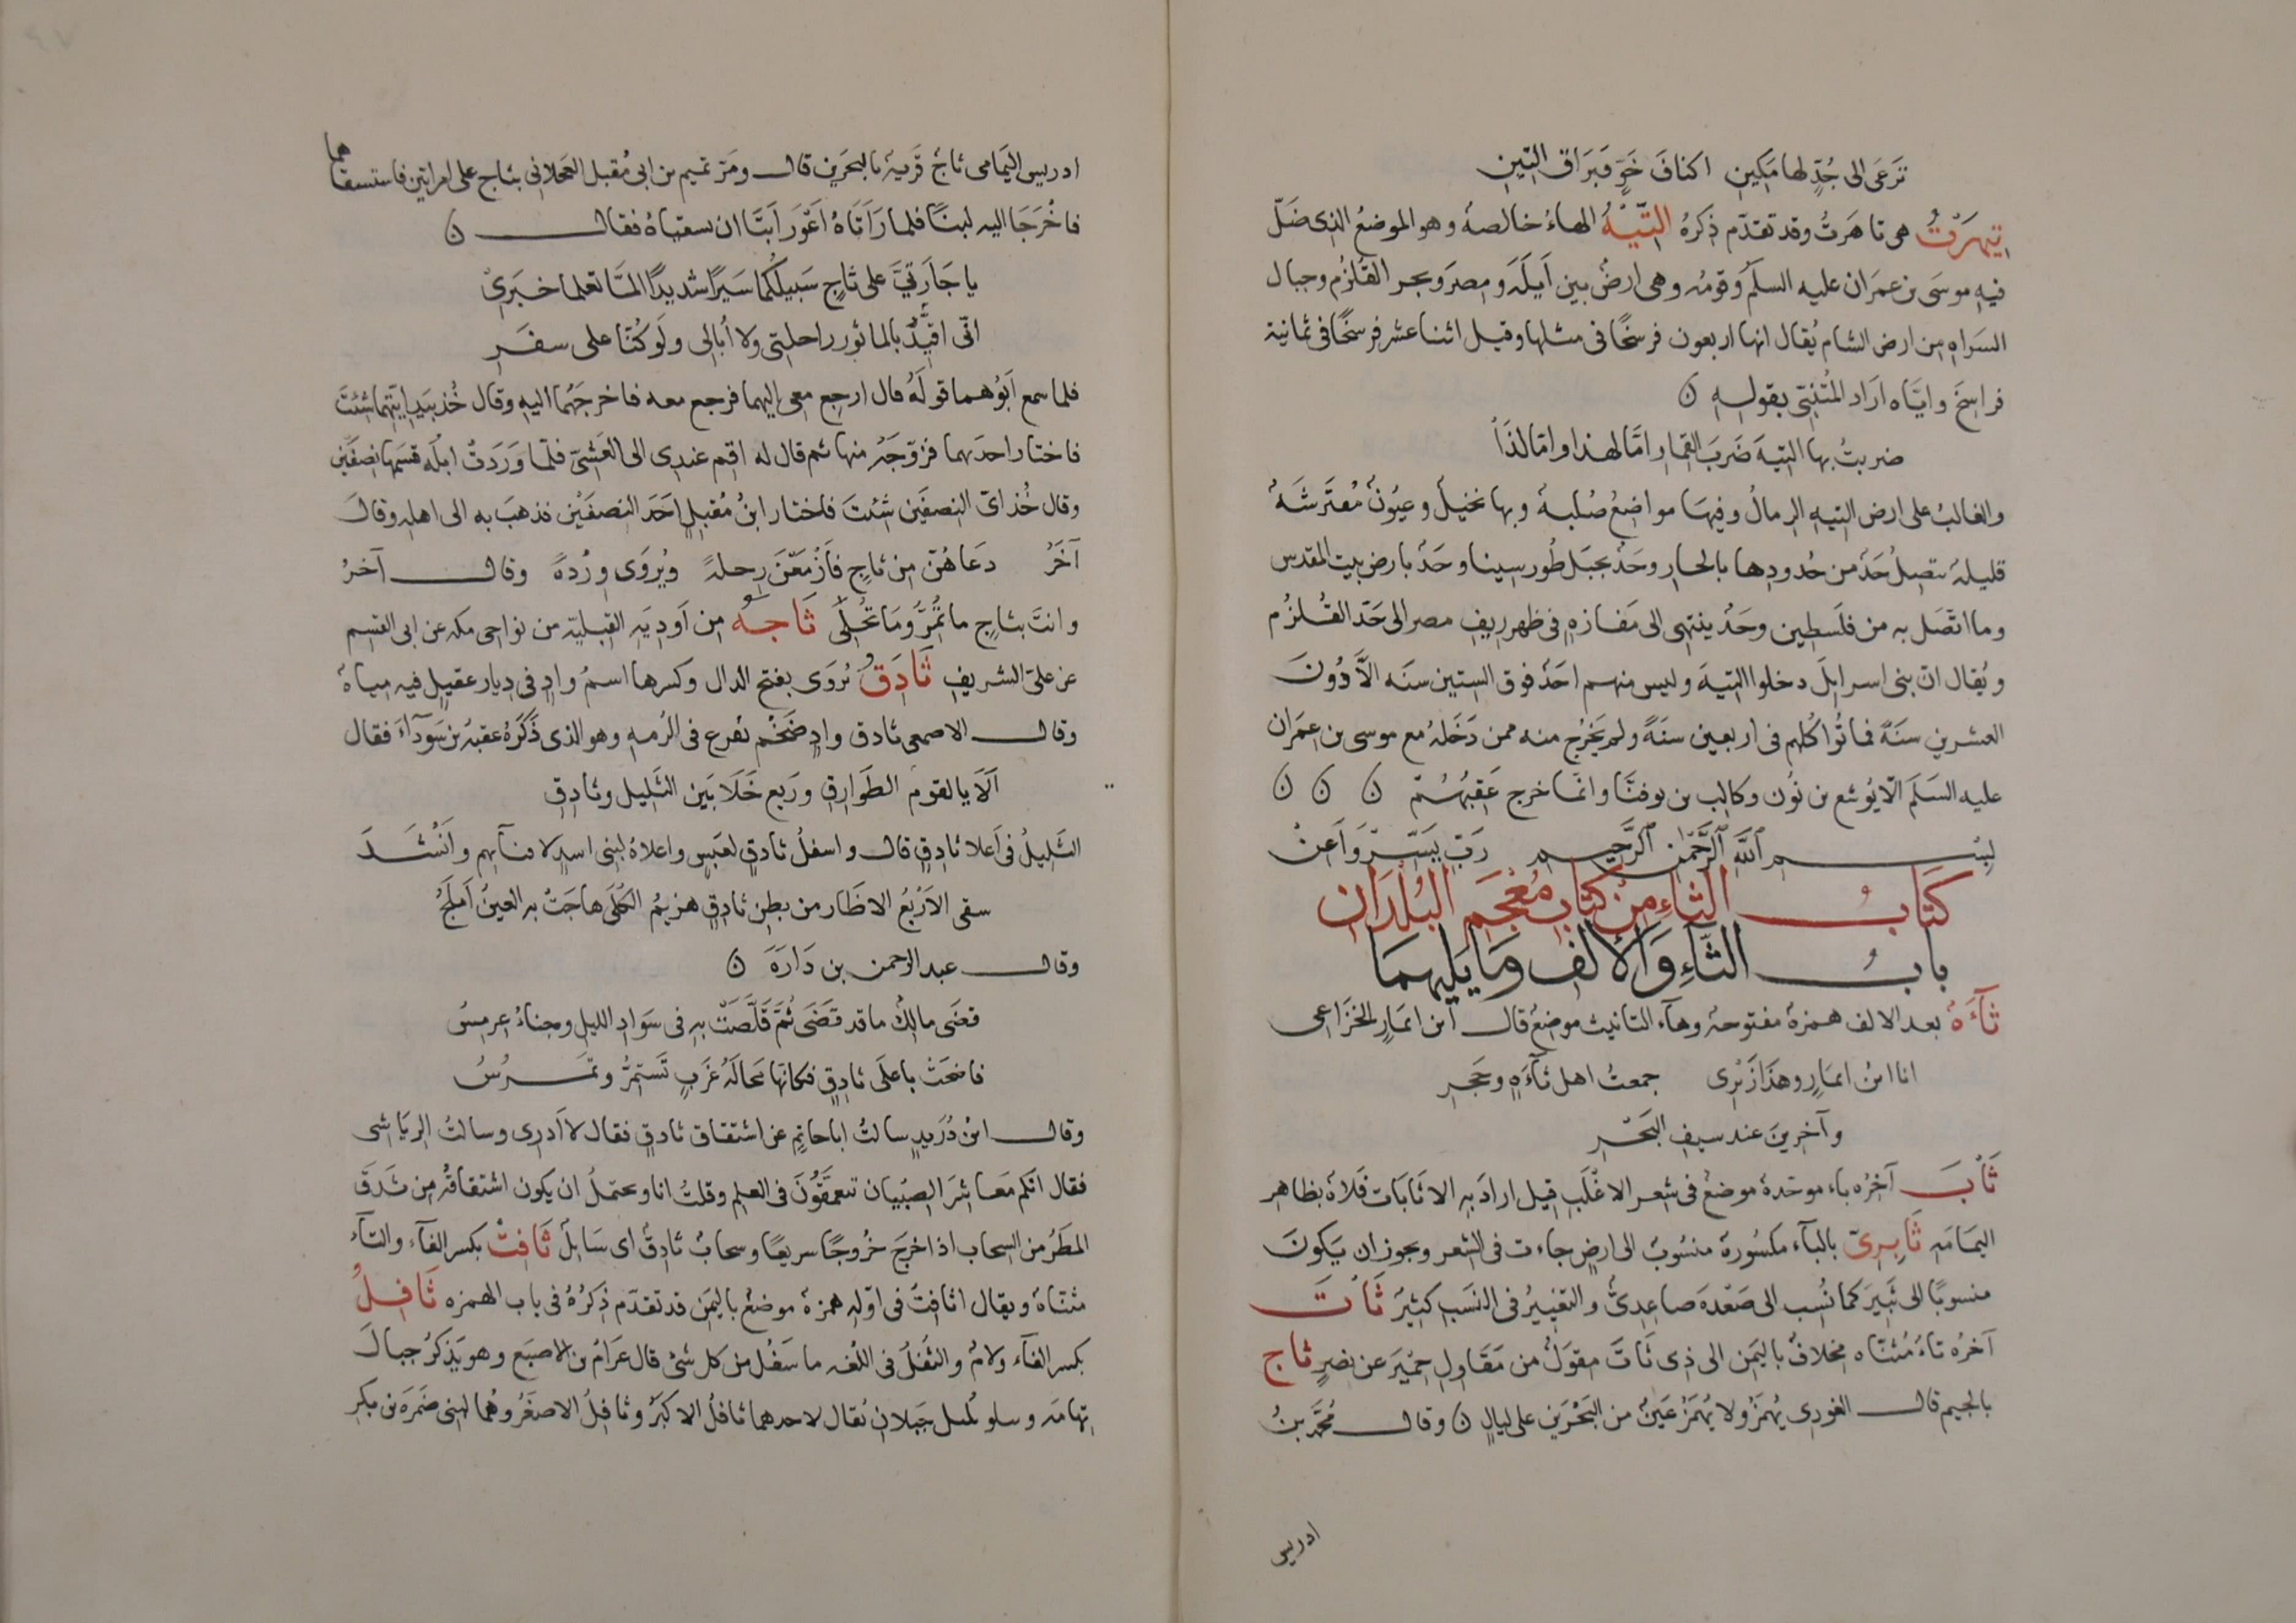 ترعى الى جُدٍّ لها مَكين اكنافَ خَوٍّ فبَراق التين
تيهَرْتُ هى تاهَرتُ وقد تقدّم ذكرهُ التّيْهُ الهاءُ خالصة وهو الموضعُ الذى ضَلّ
فيه موسَى بن عمَران عليه السلم وقومُه وهى ارضٌ بين اَيلَة ومصرَ وبحر القلزُم وجبال
السَراه من ارض الشام يُقال انها اربعون فرسخًا فى مثلها وقيل اثنا عشر فرسخًا فى ثمانية
فراسخَ وايّاه ارَاد المُتنبّى بقوله ن
ضربتُ بها التيهَ ضَربَ القمار امّا لهذا وامّا لذَا
والغالبُ على ارض التيه الرمالُ وفيهَا مواضعُ صُلبة وبها نخيلٌ وعيُونٌ مُفتَرشَة
قليلة يتصِلُ حَدٌ من حُدودِها بالحفار وحَدٌ بجبَل طُور سينا وحَدٌ بارض بيت المقدس
وما اتصَل به من فلَسطين وحَدٌ ينتهى الى مَفازه فى ظهر ريف مصر الى حَدّ القلزُم
ويُقال انّ بنى اسرايلَ دخلوا التيهَ وليس منهم احَدٌ فوق الستين سنَه الاّ دُونَ
العشرين سنَة فماتُوا كلهم فى اربعين سنَةً ولم يَخرُج منه ممن دَخَلهُ مع موسى بن عمرَان
عليه السَلَم الّا يُوشع بن نُون وكالب بن يوفنَّا وانّما خرج عَقِبُهُمْ ن ن ن
بسْم ٱللّه ٱلرَّحمٰن ٱلرَّحِيم رَبّ يَسّرْ وَاَعِنْ
كتَابُ الثاءِ مِنْ كتَاب مُعْجَم البُلْدَان
بابُ الثّاءِ وَالالف ومَا يَليهمَا
ثآءَةُ بعد الالف همزة مفتوحة وهآء التانيث موضعٌ قال ابن اَنمارٍ الخزَاعى
انا ابنُ انمارٍ وهذَا زَبْرى جمعتُ اهل ثآءَةٍ وحَجرِ
وآخرينَ عند سيفِ البَحْرِ
ثَأبَ آخِرُه باء موحّدة موضعٌ فى شعر الاغْلَبِ قيل ارادَ به الاثابات فَلاة بظاهر
اليمَامَه ثَابِرِىّ بالبآء مكسُورة منسُوبٌ الى ارضٍ جاءت فى الشعر ويجوز ان يَكونَ
منسوبًا الى ثَبيرَ كما نُسِب الى صَعْدة صاعدىٌّ والتغييرُ فى النسَب كثيرٌ ثَاتَ
آخرُه تاءٌ مُثنّاه مخلافٌ باليَمن الى ذى ثَاتَ مقوَلٌ من مَقَاول حِمْيَر عن نصرٍ ثاج
بالجيم قال الغورى يُهمَزُ ولا يُهمَزُ عَينٌ من البَحْرَين على ليالٍ ن وقال محمّد بنُ
ادريس
ادريس اليَمامى ثاجٌ قَرية بالبحَرين قال ومَرّ تميم بن ابى مُقبل العجلانى بثاج على امراتين فاستسقاهما
فاخْرَجَا اليه لبنًا فلما رَاَتَاهُ اَعْوَر اَبَتَا ان يسقيَاهُ فقال ن
يا جَارَتيَّ على ثاجٍ سَبيلكُما سَيرًا شديدًا المّا تعلما خَبَرىْ
انّى اقيّدُ بالماثور راحلتى ولا اُبالى ولَو كُنّا على سفَرِ
فلما سمع اَبُوهما قولَهُ قال ارجع معى اليهما فرجع معه فاخرجَهُما اليه وقال خُذ بيَد ايّتهما شئتَ
فاختار احدَيهما فزوّجَهُ منها ثم قال له اقم عندى الى العَشىّ فلمّا وَرَدَتْ ابلُه قسَمها نصفَين
وقال خُذ اىّ النصفَين شئتَ فاختار ابنُ مُقبلٍ احَدَ النصفَيْن فذهبَ به الى اهله وقال
آخَرُ دعَاهُنّ من ثاجٍ فَازْمَعْنَ رِحلةً ويُروَى ورْدَهُ وقال آخرُ
وانتَ بثاجٍ ما تُمِرُّ ومَا تُحْلَى ثَاجَهُ من اَودِيَه القبليّة من نواحى مكه عن ابى القسم
عن علىّ الشريف ثَادِقٌ يُروَى بفتح الدال وكسرها اسمُ وادٍ فى ديار عقيلٍ فيه مياهٌ
وقال الاصمعى ثادق وادٍ ضَخْم يفرغ فى الرُمه وهو الذى ذَكَرَهُ عقبة بن سَوداءَ فقال
اَلاَ يالقوم الطَوارق ورَبع خَلاَ بَين الثَليل وثادِقِ
الثَليلُ فى اَعلا ثادقٍ قال واسفلُ ثادقٍ لعَبسٍ واعلاهُ لبنى اسدٍ لافنآئهم وانْشَدَ
سقى الاَرْبُعَ الاظار من بطن ثادقٍ هزيمُ الكُلَى هاجَتْ به العينُ اَملَحُ
وقال عبد الرحمن بن دَارَةَ ن
قضَى مالكٌ ما قد قضَى ثُمّ قَلّصَتْ به فى سَوادِ الليل وجناءُ عِرمِسُ
فاضحَتْ باعلَى ثادقٍ فكانّها مَحالَةُ غَربٍ تَستَمِرُّ وتمرُسُ
وقال ابنُ دُرَيدٍ سالتُ ابا حاتمٍ عن اشتقاق ثادقٍ فقال لا اَدرى وسالتُ الريَاشى
فقال انّكم مَعاشرَ الصِبْيان تتعمقّونَ فى العلم وقلتُ انا ويحتملُ ان يكون اشتقاقهُ من ثَدَقَ
المطَرُ من السحاب اذا خرَجَ خُروجًا سريعًا وسحابٌ ثادقٌ اى سَايلٌ ثَافِتْ بكسر الفآء والتآء
مثنّاة ويقال اثافتُ فى اوّله همزة موضعٌ باليمَن قد تقدّم ذكرُهُ فى باب الهمزه ثَافِلُ
بكسر الفآء ولامٌ والثفلُ فى اللغه ما سَفُل من كل شئ قال عَرّامُ بن الاصبَع وهو يَذكرُ جبالَ
تهامَه ويتلو جَبلان يُقال لاحدهما ثافلُ الاكبرُ وثافِلُ الاصغرُ وهُما لبنى ضمْرَة بن بكرِ